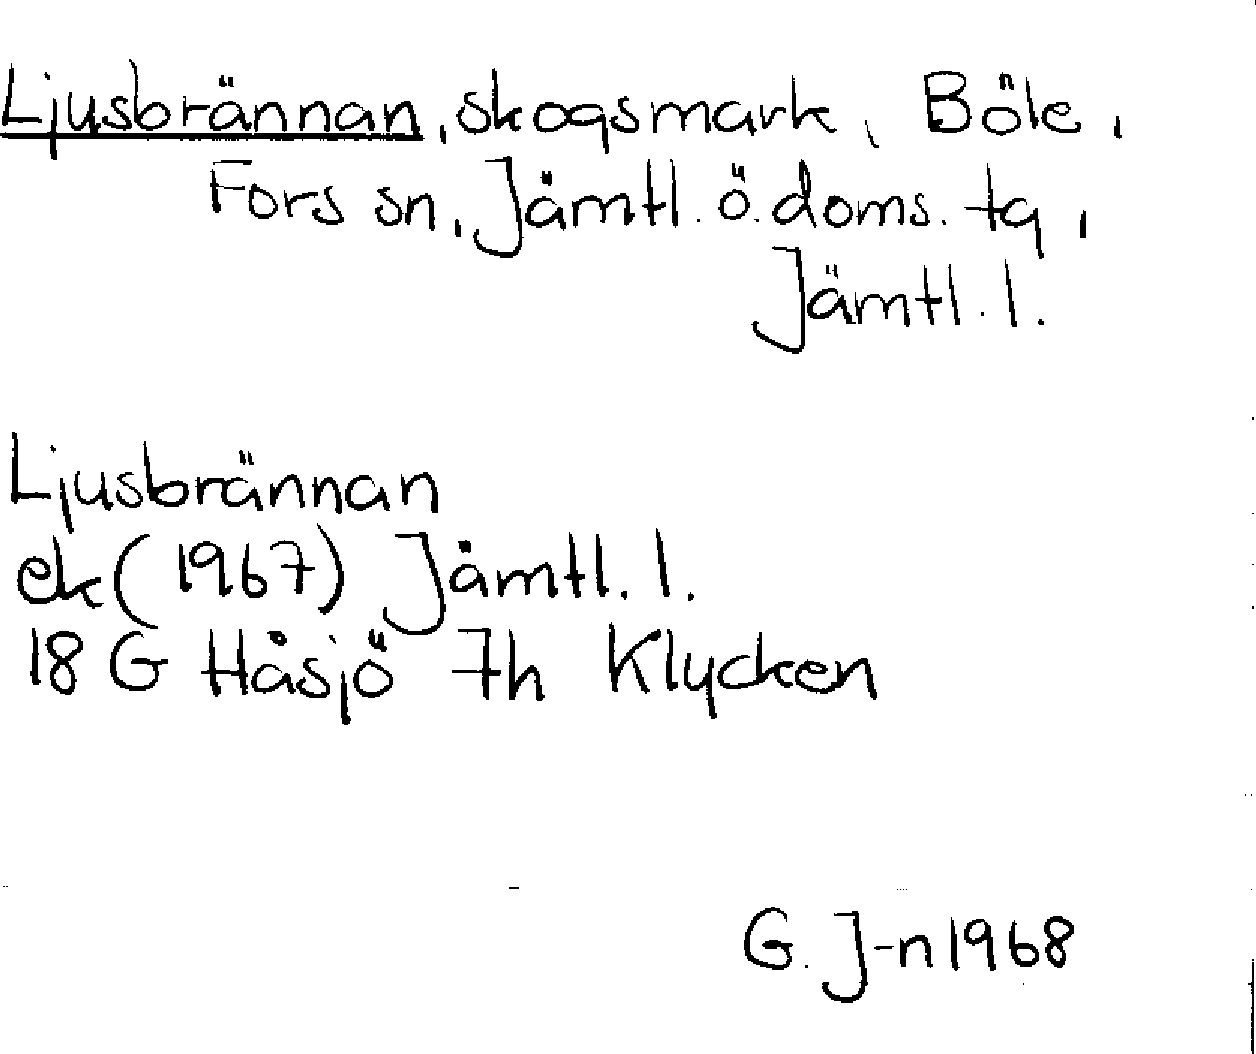 Ljusbrännan, skogsmark, Böle,
Fors sn, Jämtl. ö. doms. tg,
Jämtl. l.
Ljusbrännan
ek (1967) Jämtl. l.
18 G Håsjö 7h Klycken
G. J-n 1968